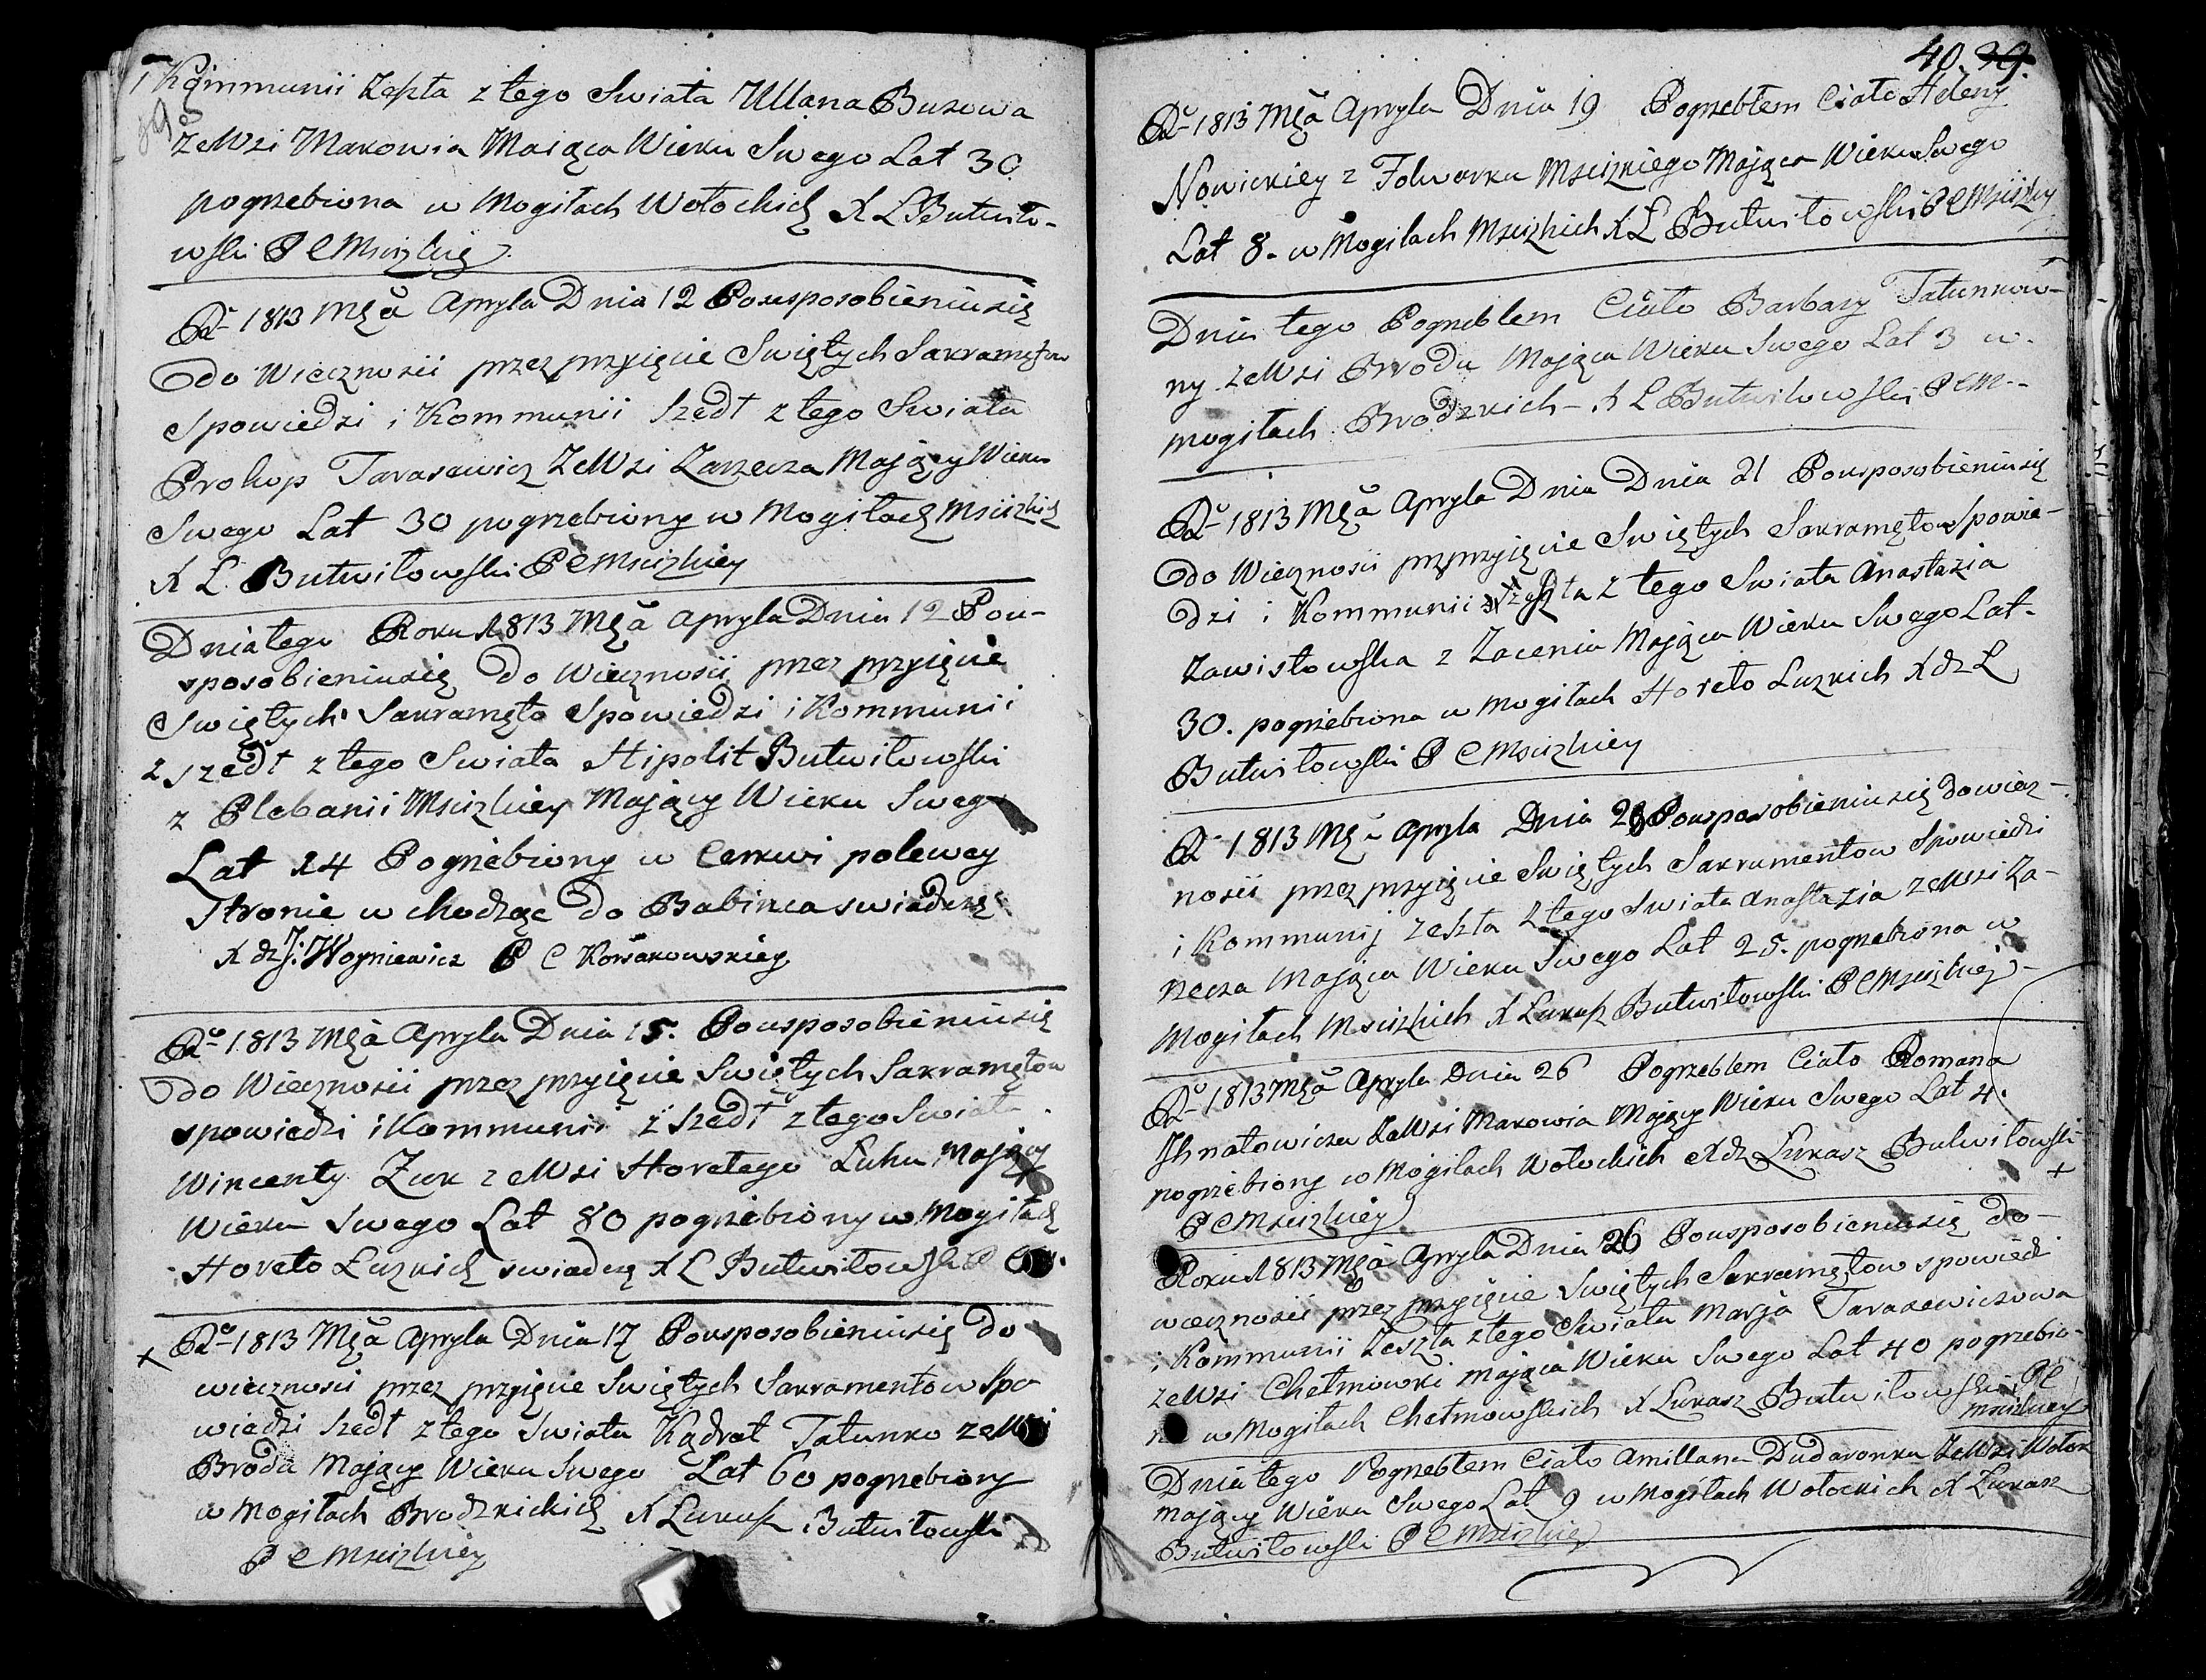 i Kommunii Zeszła z tego Swiata Ullana Busowa
ze Wsi Makowia Maiąca Wieku Swego Lat 30
pogrzebiona w Mogiłach Wołockich X L Butwiło-
wski P C Mscizkiey
Rº 1813 Mca Apryla Dnia 12 Po usposobieniu się
do Wiecznosci przez przyięcie Swiętych Sakramętow
Spowiedzi i Kommunii szedł z tego Swiata
Prokop Tarasewicz ze Wsi Zarzecza Mający Wieku
Swego Lat 30 pogrzebiony w Mogiłach Mscizkich
X L Butwiłowski P C Mscizkiey
Dnia tego Roku 1813 Mca Apryla Dnia 12 Po u-
sposobieniu się do Wiecznosci przez przyięcie
Swiętych Sakramęto Spowiedzi i Kommunii
z szedł z tego Swiata Hipolit Butwiłowski
z Plebanii Mscizkiey Mający Wieku Sweg
Lat 14 Pogrzebiony w Cerkwi polewey
Stronie w chodząc do Babinca swiadczę
X dz J: Woyniewicz P C Korsakowskiey
Rº 1813 Mca Apryla Dnia 15. Po usposobieniu się
do Wiecznosci przez przyięcie Swiętych Sakramętow
spowiedzi i Kommunii z szedł z tego Swiata
Wincenty Zuk z e Wsi Horełego Łuhu Mający
Wieku Swego Lat 80 pogrzebiony w Mogiłach
Horeło Łuzkich swiadczę X L Butwiłowski P C
Rº 1813 Mca Apryla Dnia 17 Po usposobieniu się do
wiecznosci przez przyięcie Swiętych Sakramentow Spo
wiedzi szedł z tego Swiata Kądrat Tatunko ze Wsi
Broda Mający Wieku Swego Lat 60 pogrzebiony
w Mogiłach Brodzkickich X Łukasz Butwiłowski
P C Mscizkiey
40. 39.
Rº 1813 Mca Apryla Dnia 19 Pogrzebłem Ciało Heleny
Nowickiey z Folwarku Mscizkiego Mająca Wieku Swego
Lat 8. w Mogiłach Mscizkich X Ł Butwiłowski P C Mscizkiey
Dnia tego Pogrzeblem Ciało Barbary Tatunków-
ny ze Wsi Brodu Mająca Wieku Swego Lat 3 w
mogiłach Brodzkich - X L Butwiłowski P C M--
Rº 1813 Mca Apryla Dnia Dnia 21 Po usposobieniu się
do Wiecznosci prz przyięcie Swiętych Sakramętow Spowie-
dzi i Kommunii zeszła z tego Swiata Anastazia
Zawistowska z Mająca Wieku Swego Lat-
30. pogrzebiona w mogiłach Horeło Łuzkich X dz L
Butwiłowski P C Mscizkiey
Rº 1813 Mca Apryla Dnia Po usposobieniu się do wiecz-
nosci przez przyięcie Swiętych Sakramentow Spowiedzi
i Kommunij zeszła z tego Swiata Anastazia ze Wsi Za-
rzecza Mająca Wieku Swego Lat 25. pogrzebiona w
Mogiłach Mscizkich X Łukasz Butwiłowski P C Mscizkiej
Rº 1813 Mca Apryla Dnia 26 Pogrzeblem Ciało Romana
Ihnatowicza ze Wsi Makowia Mający Wieku Swego Lat 4.
pogrzebiony w Mogiłach Wołockich X dz Łukasz Butwiłowski
P C Mscizkiey
Roku 1813 Mca Apryla Dnia 26 Po usposobieniu się do-
wiecznosci przez przyięcie Swiętych Sakramętow spowiedzi
i Kommunii Zeszła z tego Swiata Marja Tarasewiczowa
ze Wsi Chełmowki mająca Wieku Swego Lat 40 pogrzebio-
na w Mogiłach Chełmowskich X Łukasz Butwiłowski P C
Mscizkiey
Dnia tego Pogrzebłem Ciało Amillana Dudaronka ze Wsi Wołok
mający Wieku Swego Lat 9 w Mogiłach Wołockich X Łukasz
Butwiłowski P C Mscizkiej